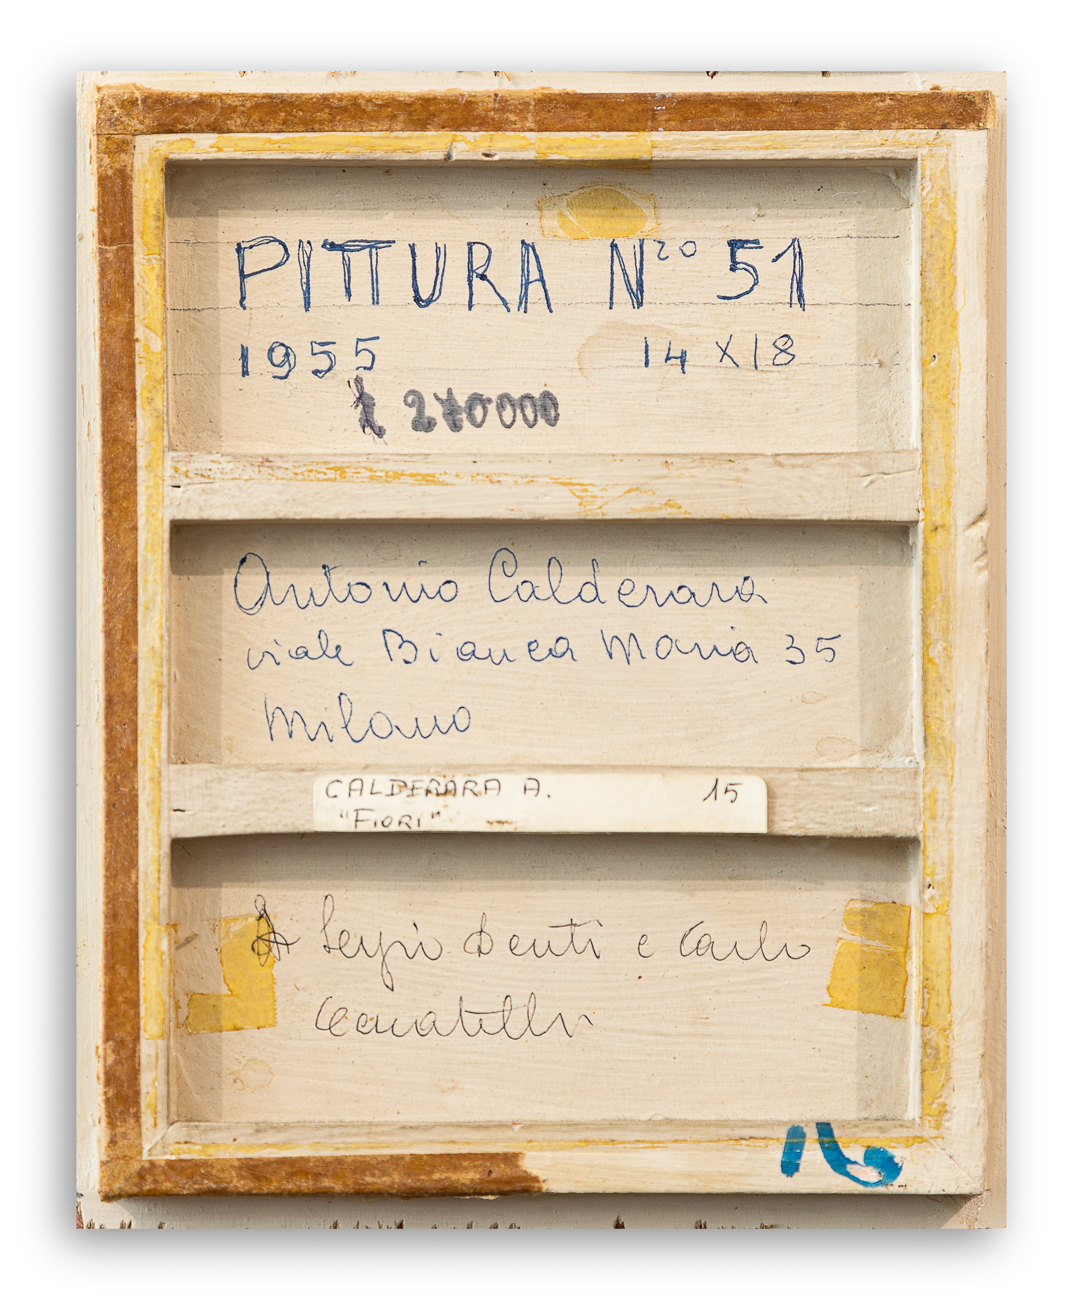 PITTURA Nro 51
1955 14 x 18
£ 270000
Antonio Calderara
viale Bianca Maria 35
Milano
CALDERARA A. 15
"FIORI"
A Sergio Denti e Carlo
16